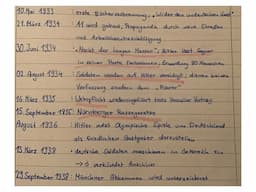 10. Mai 1933 : erste Bücherverbrennung, "Wider den undeutschen Geist"
21. März 1934 : wird gebaut, Propaganda durch neue Straßen
und Arbeitsbeschäftigung
30. Juni 1934 : "Nacht der langen Messer": Hitler lässt Gegner
in seiner Partei Ermordung
02. August 1934 : Soldaten werden auf Hitler vereidigt, dienen keiner
Verfassung sondern dem "Führer"
16. März 1935 : Wehrpflicht wiedereingeführt trotz Versailler Vertrag
15. September 1935 : Nürnberger Rassengesetze
August 1936 : Hitler nutzt Olympische Spiele um Deutschland
als friedlichen Gastgeber darzustellen
13. März 1938 : deutsche Soldaten einmarschieren in Österreich ein
→ Ö verkündet Anschluss
29. September 1938 : Münchner Abkommen wird unterzeichnet